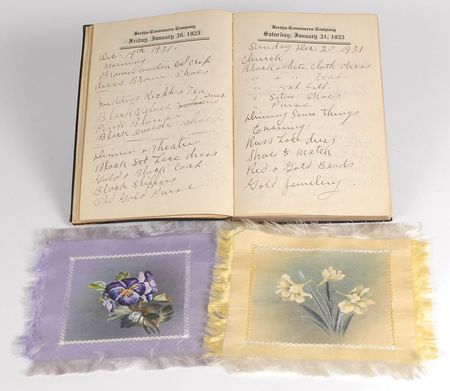 Berths-Consumers Company
Friday, January 30, 1925
Dec. 19th 1931.
Morning
Brown wooden Crepe
dress Brown Shoes
Wedding Recpt & Tea
Black Velvet
Pink Blouse
Black suede shoes
Dinner & Theater
Black Set Lace dress
Gold & Black Coat
Black Slippers
Old Gold Purse
Berths-Consumers Company
Saturday, January 31, 1925
Sunday Dec 20 1931
Church
Black & white Cloth dress
" " " Coat
" Hat Felt.
" Satin Shoes
" Purse
Dinning Same Things
Evening.
Russ Lace dress
Shoe to Match
Red & Gold Beads
Gold Jewelery.